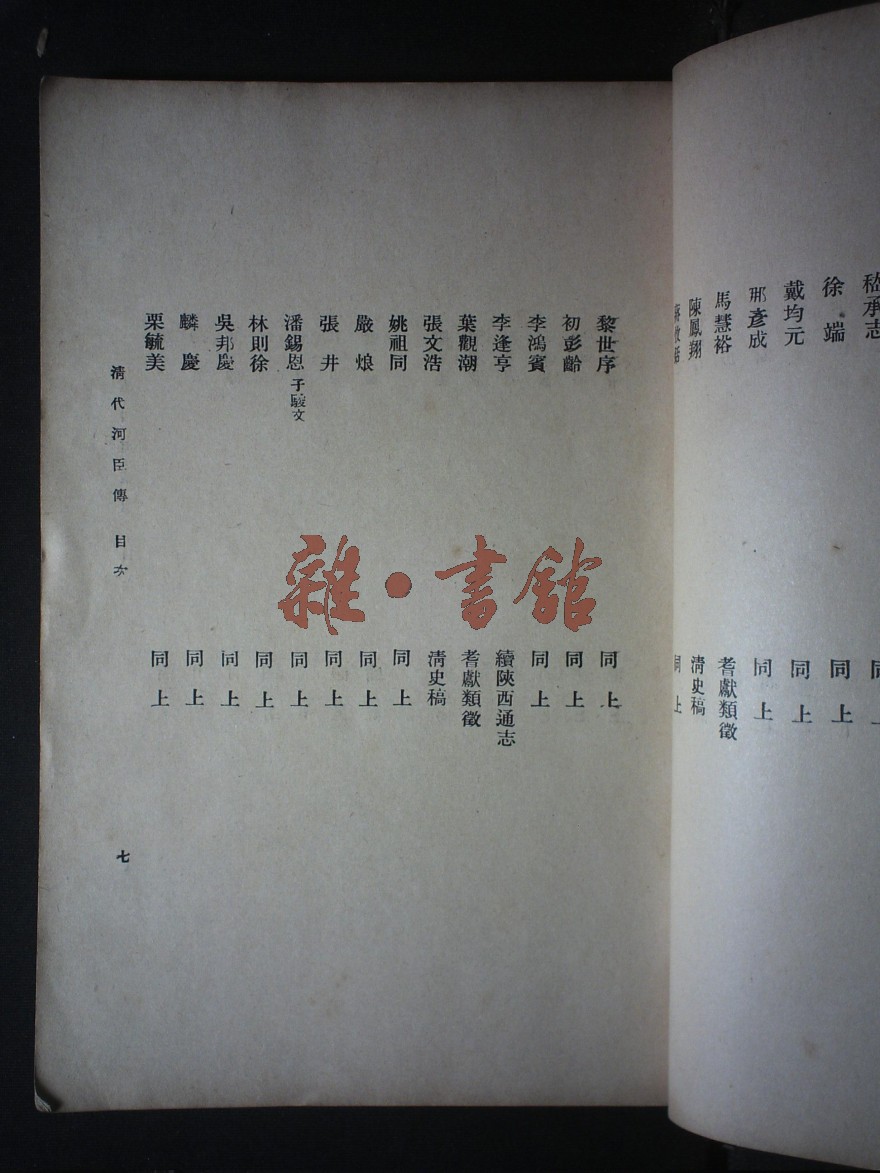 嵇承志
徐端 同上
戴均元 同上
那彥成 同上
馬慧裕 耆獻類徵
陳鳳翔 清史稿
同上
黎世序 同上
初彭齡 同上
李鴻賓 同上
李逢亨 續陝西通志
葉觀潮 耆獻類徵
張文浩 清史稿
姚祖同 同上
嚴烺 同上
張井 同上
潘錫恩 子駿文 同上
林則徐 同上
吳邦慶 同上
麟慶 同上
栗毓美 同上
清代河臣傳 目次
七
雜·書館